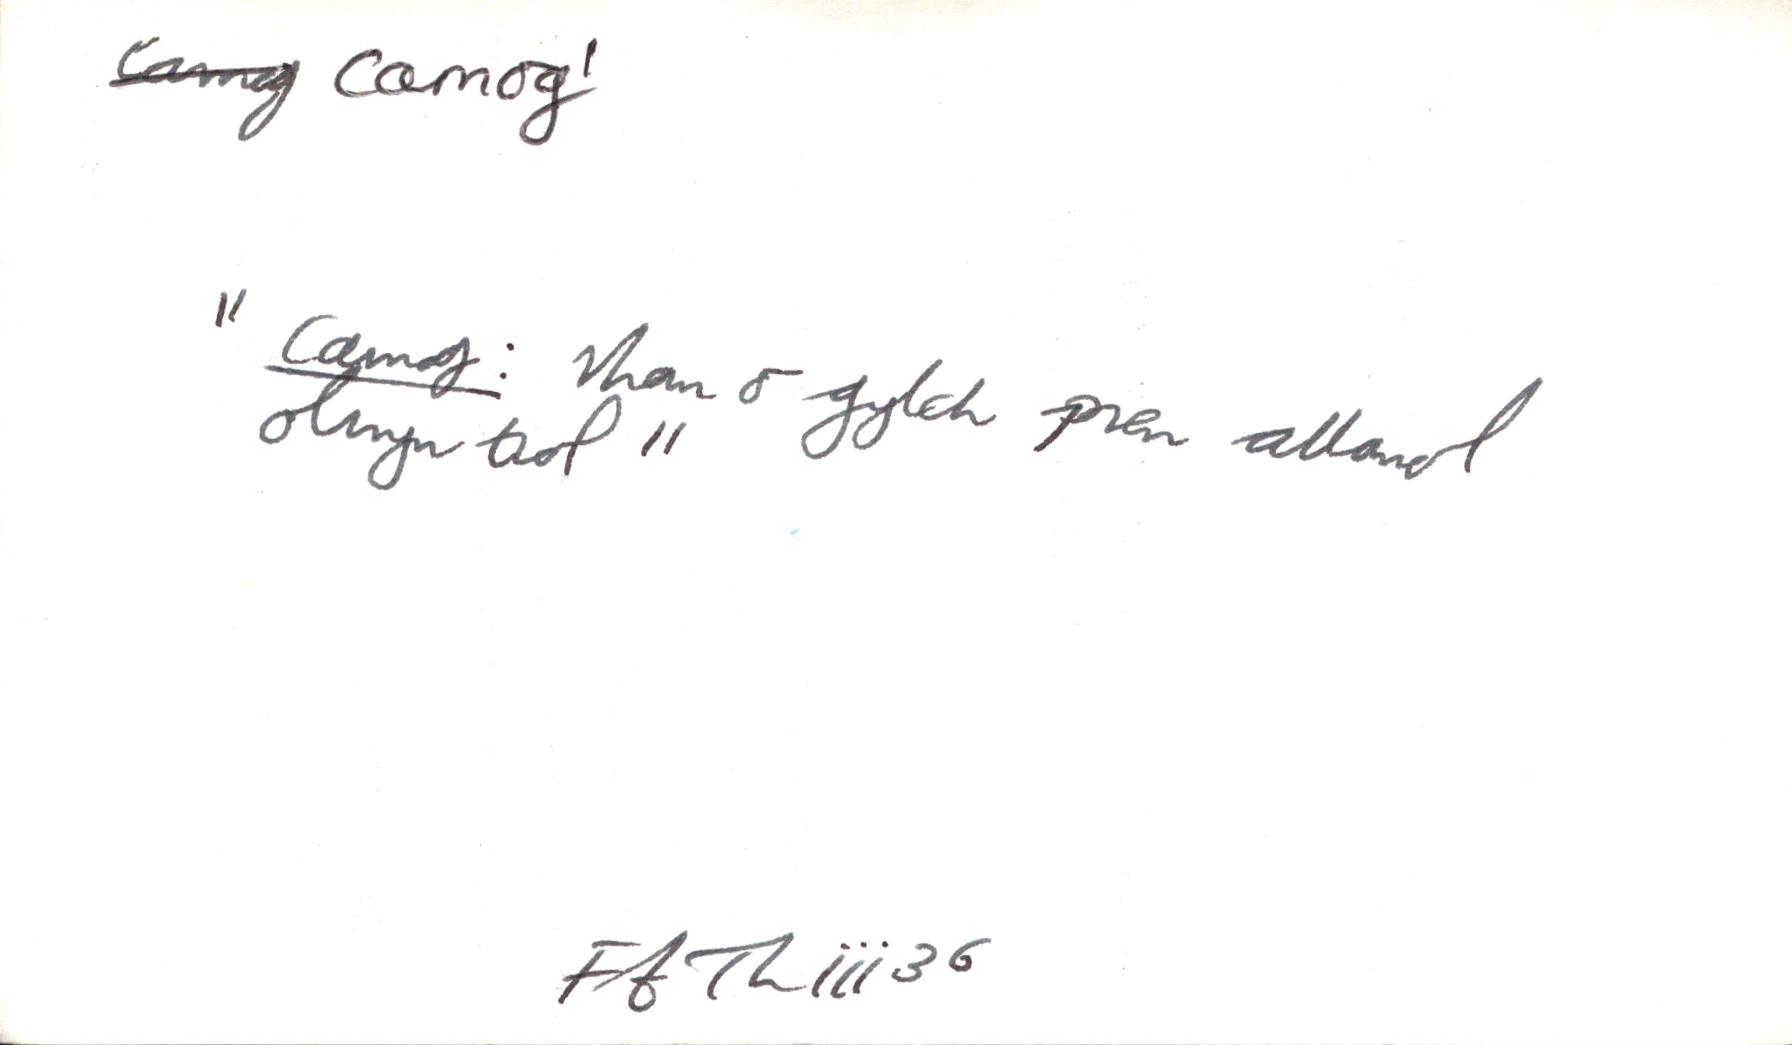 Camog Camog¹
" Camog: Rhan o gylch pren allanol
olwyn trol "
Ff Th iii 36